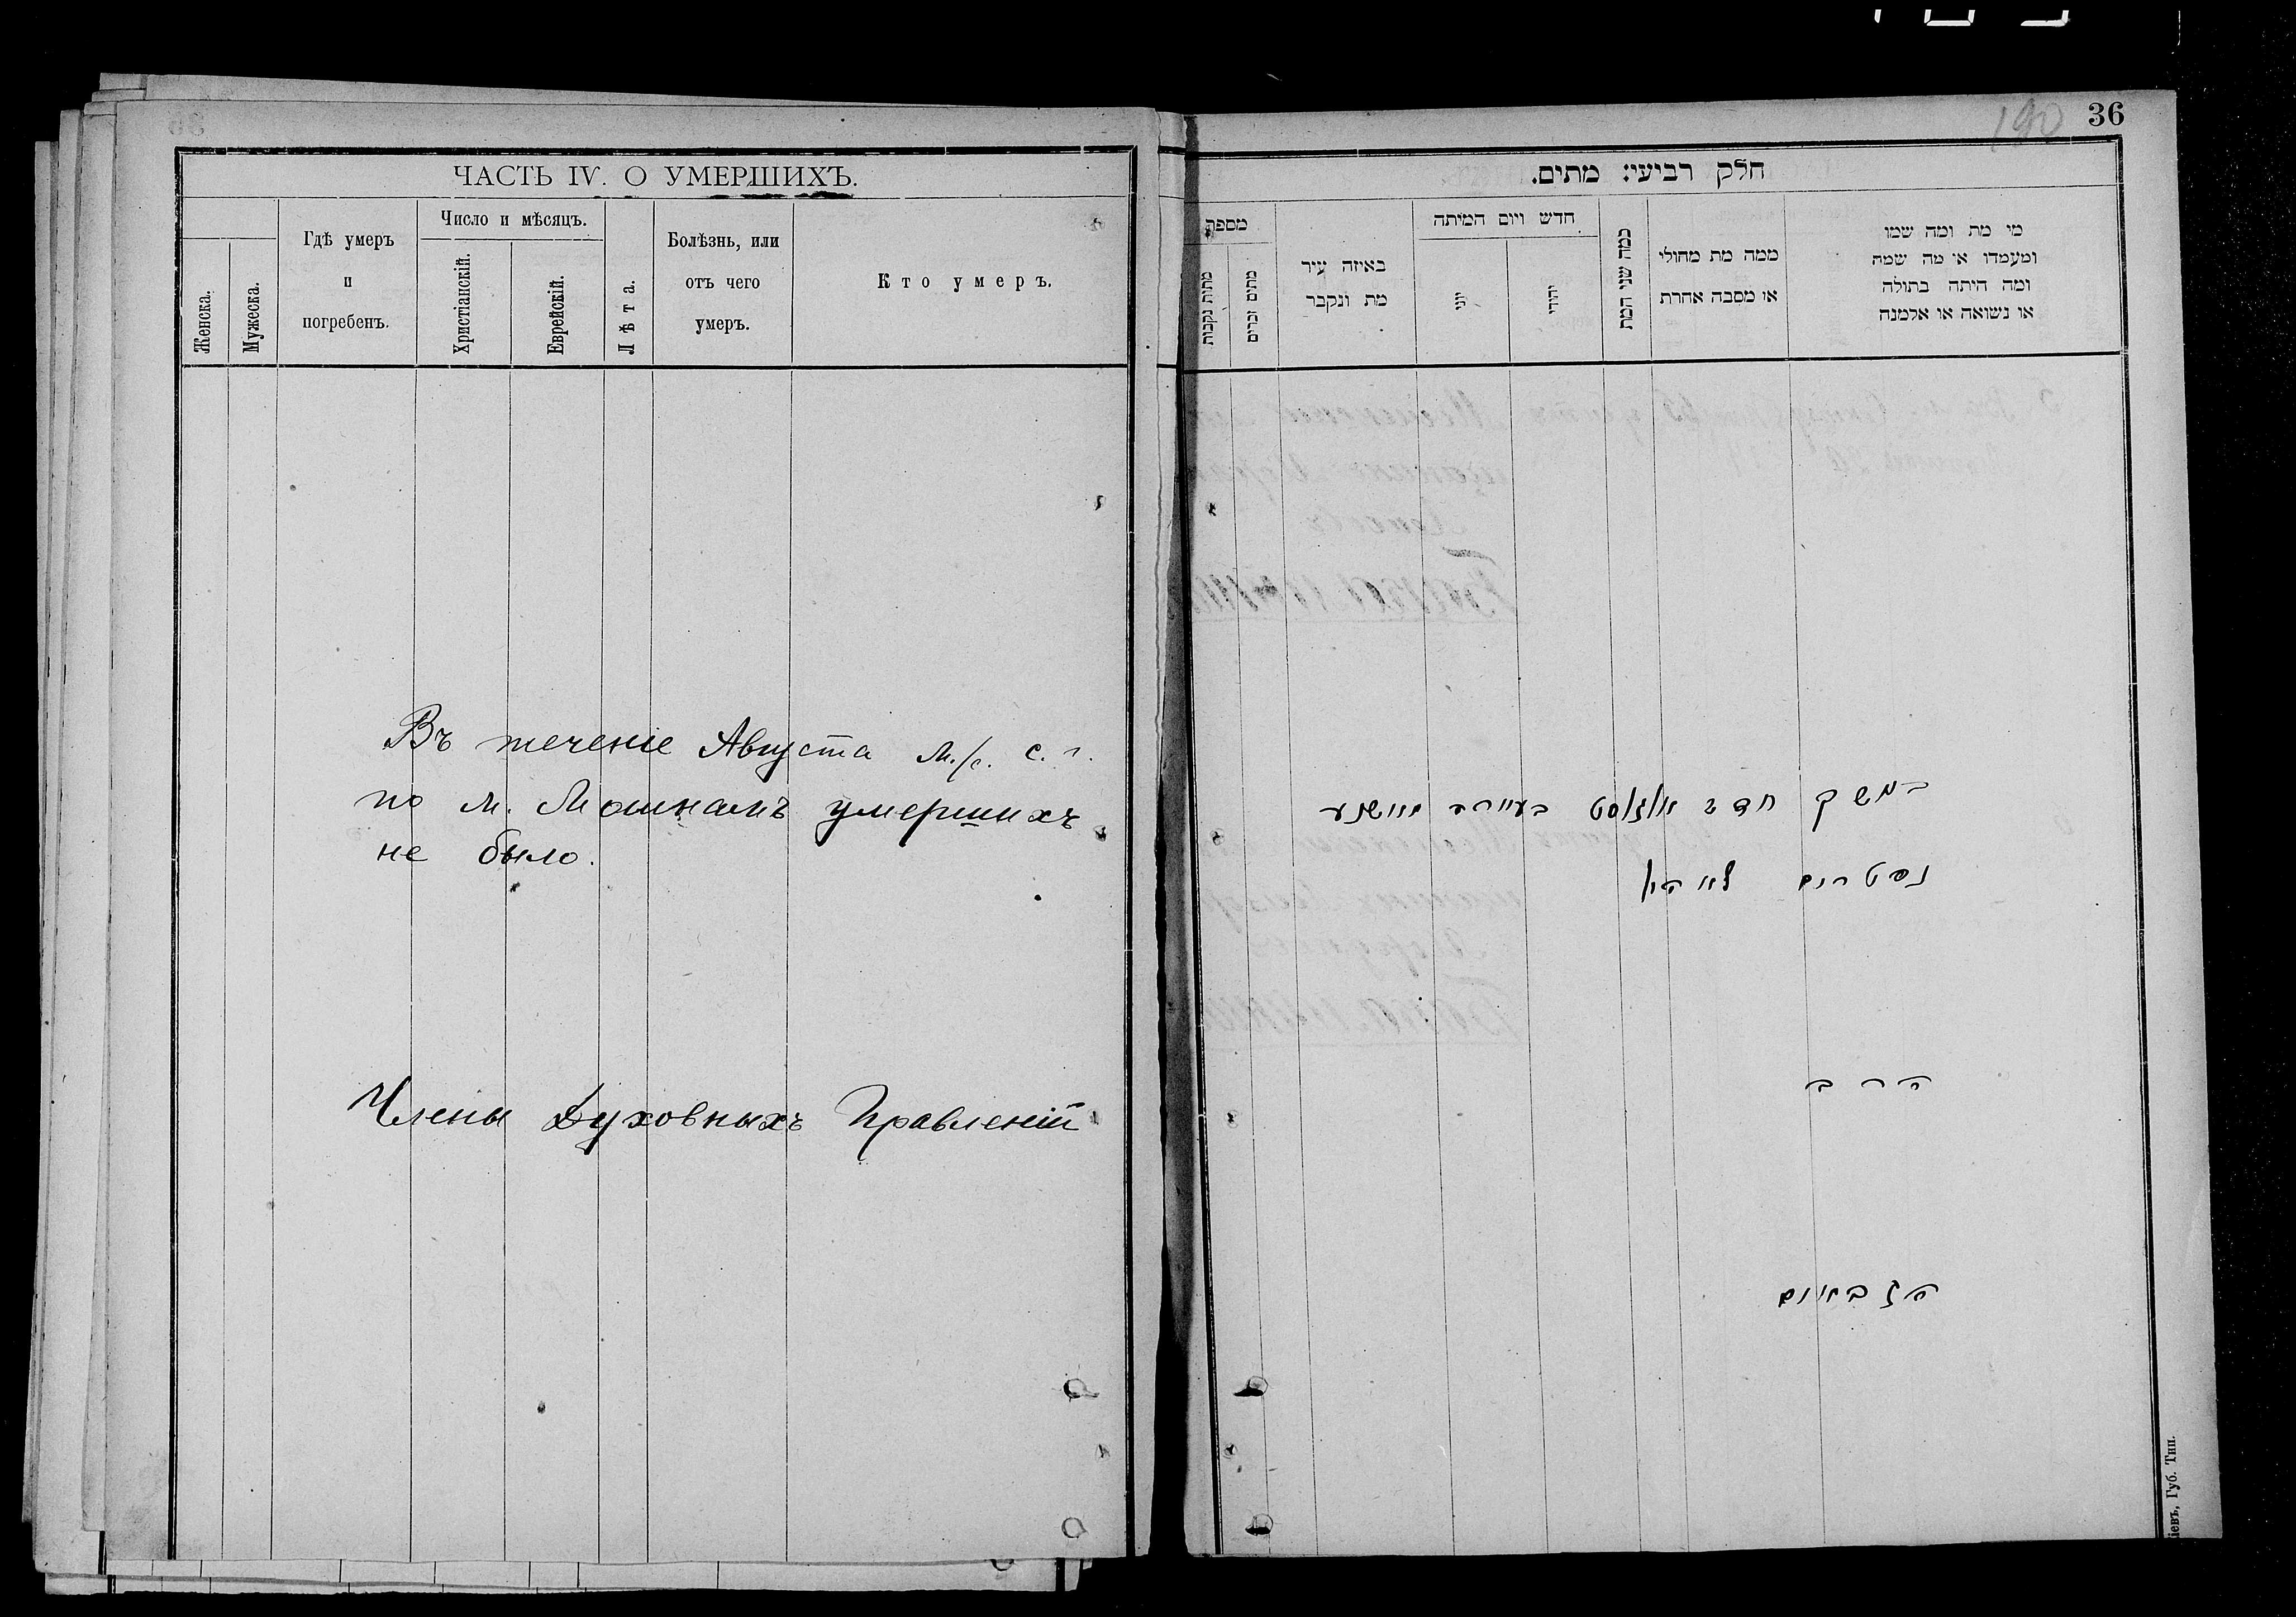 ЧАСТЬ IV. О УМЕРШИХЪ.
Женска.
Мужеска.
Гдѣ умеръ
и
погребенъ.
Число и мѣсяцъ.
Христіанскій.
Еврейскій.
Лѣта.
Болѣзнь, или
отъ чего
умеръ.
Кто умеръ.
Въ теченіе Августа м./с. с. г.
по м. Мошнамъ умершихъ
не было.
Члены Духовныхъ Правленій
190
36
חלק רביעי: מתים.
מספר
מתות נקבות
מתים זכרים
באיזה עיר
מת ונקבר
חדש ויום המיתה
יוני
יהודי
כמה שני המת
ממה מת מחולי
או מסבה אחרת
מי מת ומה שמו
ומעמדו או מה שמה
ומה היתה בתולה
או נשואה או אלמנה
במשך חדש אוגוסט בעיירה מאשנע
נפטרים לא היו
הרב
הגבאים
Кіевъ, Губ. Тип.